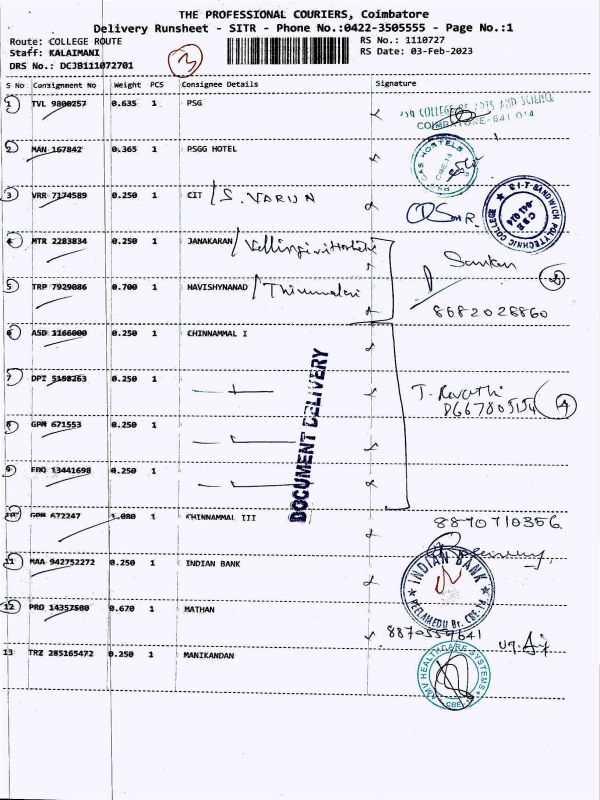 THE PROFESSIONAL COURIERS, Coimbatore
Delivery Runsheet - SITR - Phone No.:0422-3505555 - Page No.:1
Route: COLLEGE ROUTE RS No.: 1110727
Staff: KALAIMANI RS Date: 03-Feb-2023
DRS No.: DCJB111072701
3
S No Consignment No Weight PCS Consignee Details Signature
1 TVL 9800257 0.635 1 PSG
PSG COLLEGE OF ARTS AND SCIENCE
COIMBATORE-641 014
2 MAN 167842 0.365 1 PSGG HOTEL
HOSTELS
CBE-14
3 VRR 7174589 0.250 1 CIT / S. VARUN
C-I-T-SANDWICH POLYTECHNIC COLLEGE
CBE
641 014
4 MTR 2283834 0.250 1 JANAKARAN /
Sankar
2
5 TRP 7929086 0.700 1 NAVISHYNANAD / Thirumalai
8682028860
6 ASD 1166000 0.250 1 CHINNAMMAL I
7 DPI 5158263 0.250 1
T. Revathi
4
8 GPM 671553 0.250 1
DOCUMENT DELIVERY
9 EDQ 13441698 0.250 1
10 GPM 672247 1.080 1 CHINNAMMAL III
8870710356
11 MAA 942752272 0.250 1 INDIAN BANK
INDIAN BANK
PEELAMEDU Br. CBE-14
12 PRO 14357580 0.670 1 MATHAN
8870559641
13 TRZ 285165472 0.250 1 MANIKANDAN
HEALTHCARE SYSTEMS
CBE